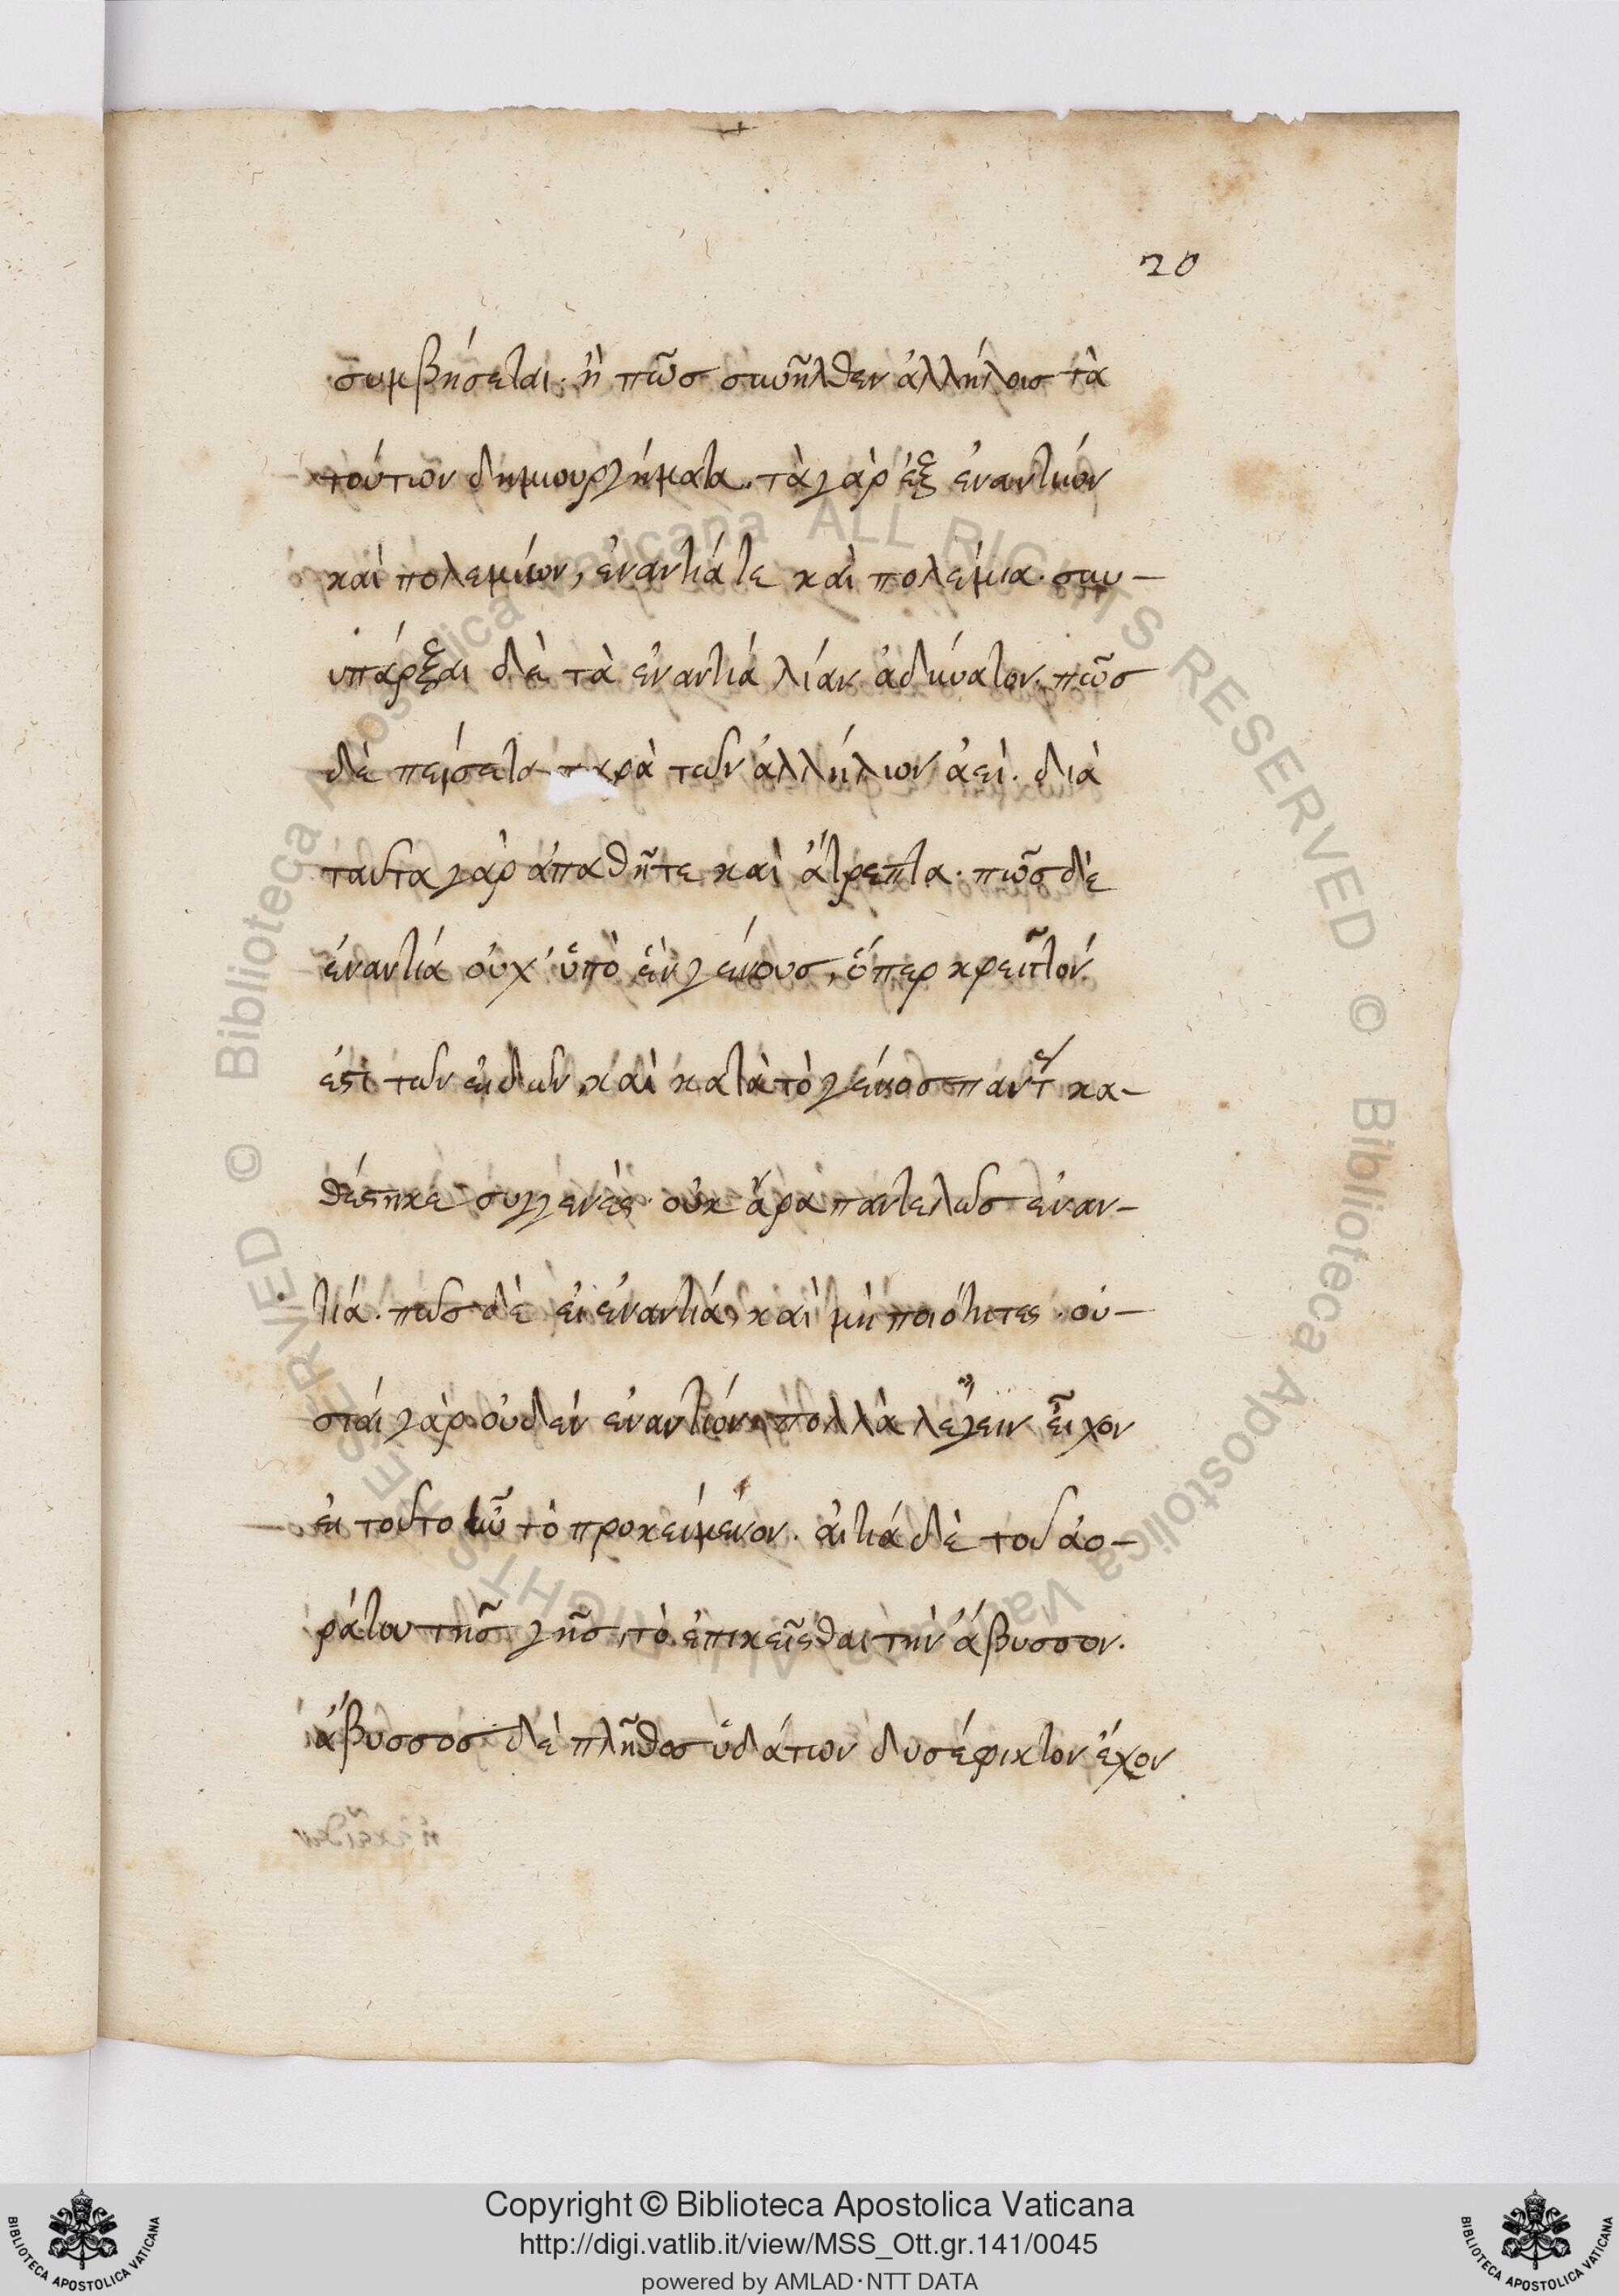 20
συμβήσεται. ἢ πῶς συνῆλθεν ἀλλήλοις τὰ
τούτων δημιουργήματα. τὰ γὰρ ἐξ ἐναντίων
καὶ πολεμίων, ἐναντιά τε καὶ πολέμια. συν-
υπάρξαι δὲ τὰ ἐναντιά λίαν ἀδύνατον. πῶς
δὲ πείσεται παρὰ τῶν ἀλλήλων ἀεὶ. διὰ
ταῦτα γὰρ ἀπαθῆ τε καὶ ἄτρεπτα. πῶς δὲ
ἐναντιά οὐχ' ὑπὸ ἓν γένους, ὅπερ κρεῖττόν
ἐστι τῶν εἰδῶν, καὶ κατὰ τὸ γένος πάντ κα-
θέστηκε συγγενὲς. οὐκ ἄρα παντελῶς ἐναν-
τιά. πῶς δὲ εἰ ἐναντιά, καὶ μὴ ποιότητες. οὐ-
σίαι γὰρ οὐδὲν ἐναντίον. πολλὰ λέγειν εἶχον
εἰ τοῦτο ἦν τὸ προκείμενον. αἰτιά δὲ τοῦ ἀο-
ράτου τῆς γῆς, τὸ ἐπικεῖσθαι τὴν ἄβυσσον.
ἄβυσσος δὲ πλῆθος ὑδάτων δυσέφικτον ἔχον
Copyright © Biblioteca Apostolica Vaticana
http://digi.vatlib.it/view/MSS_Ott.gr.141/0045
powered by AMLAD·NTT DATA
BIBLIOTECA APOSTOLICA VATICANA
BIBLIOTECA APOSTOLICA VATICANA
© Biblioteca Apostolica Vaticana ALL RIGHTS RESERVED © Biblioteca Apostolica Vaticana ALL RIGHTS RESERVED